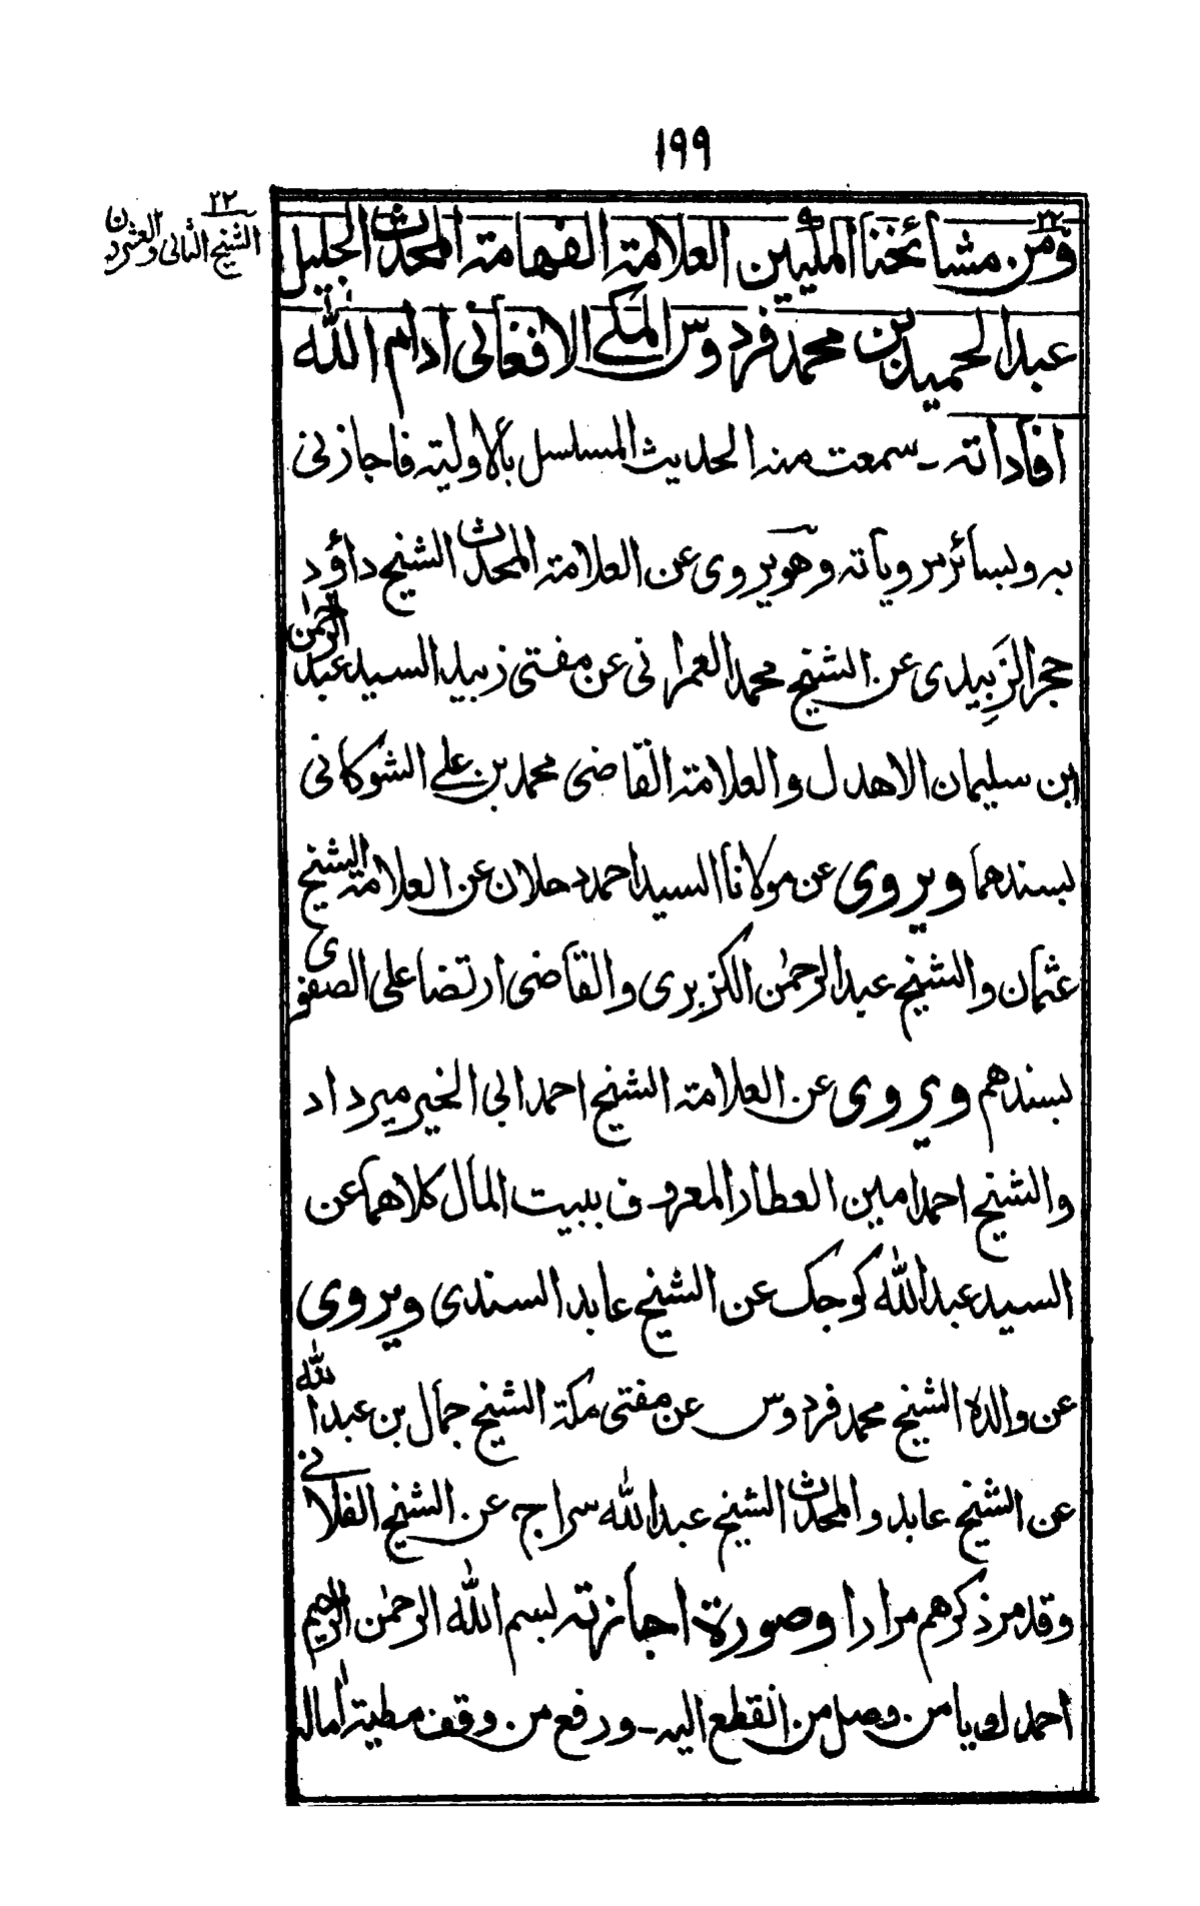 ١٩٩
٢٢
الشيخ الثاني والعشرون
٢٢
ومن مشائخنا المكيين العلامة الفهامة المحدث الجليل
عبد الحميد بن محمد فردوس المكي الافغاني ادام الله
افاداته ـ سمعت منه الحديث المسلسل بالاولية فاجازني
به وبسائر مروياته وهو يروي عن العلامة المحدث الشيخ داؤد
حجر الزَبِيدي عن الشيخ محمد العمراني عن مفتي زبيد السيد عبد الرحمن
ابن سليمان الاهدل والعلامة القاضي محمد بن علي الشوكاني
بسندهما ويروي عن مولانا السيد احمد دحلان عن العلامة الشيخ
عثمان والشيخ عبد الرحمٰن الكزبري والقاضي ارتضا علي الصفوي
بسندهم ويروي عن العلامة الشيخ احمد ابي الخير ميرداد
والشيخ احمد امين العطار المعروف ببيت المال كلاهما عن
السيد عبد الله كوجك عن الشيخ عابد السندي ويروي
عن والده الشيخ محمد فردوس عن مفتي مكة الشيخ جمال بن عبد الله
عن الشيخ عابد والمحدث الشيخ عبد الله سراج عن الشيخ الفلاني
وقد مر ذكرهم مرارا وصورة اجازته بسم الله الرحمٰن الرحيم
احمدك يا من وصل من انقطع اليه ـ ورفع من وقف مطية اماله